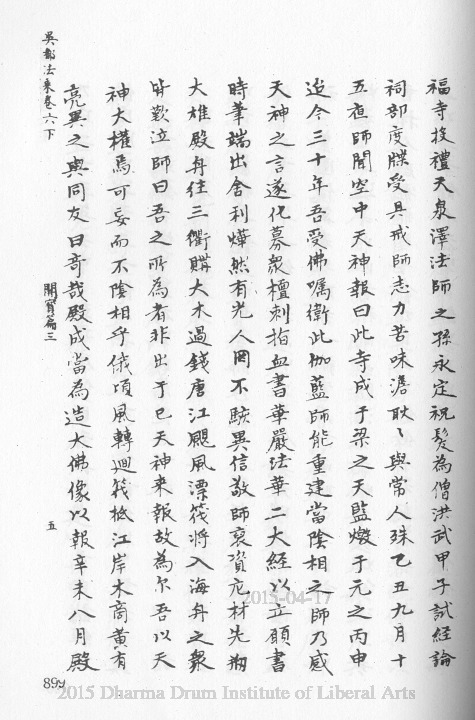 福寺投禮天泉澤法師之孫永定祝髮為僧洪武甲子試經論
祠部度牒受具戒師志力苦味澹耿〻與常人殊乙丑九月十
五夜師聞空中天神報曰此寺成于梁之天監燬于元之丙申
迨今三十年吾受佛囑衛此伽藍師能重建當陰相之師乃感
天神之言遂化募眾檀刺指血書華嚴法華二大經以立願書
時筆端出舍利燁然有光人罔不駭異信敬師裒資庀材先剙
大雄殿舟往三衢購大木過錢唐江颶風漂筏將入海舟之眾
皆歎泣師曰吾之所為者非出于已天神来報故為尔吾以天
神大權焉可妄而不陰相乎俄頃風轉迴筏抵江岸木商黃有
亮異之與同友曰奇哉殿成當為造大佛像以報辛未八月殿
吳都法乘卷六下
開實篇三
五
899
2015-04-17
2015 Dharma Drum Institute of Liberal Arts